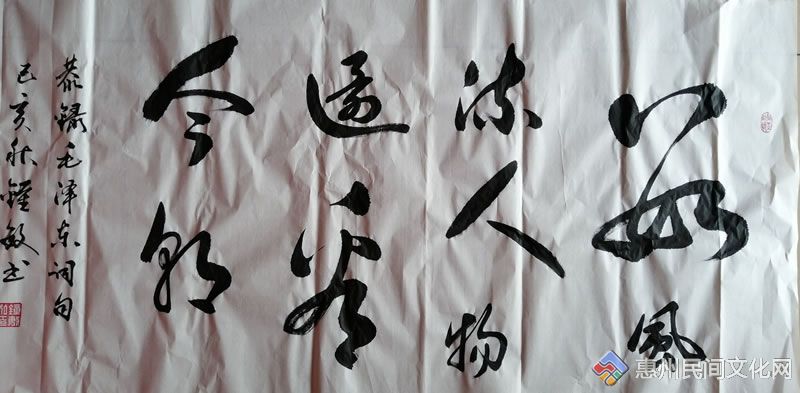 數風
流人物
還看
今朝
恭錄毛泽东词句
己亥秋鍾敏书
惠州民间文化网